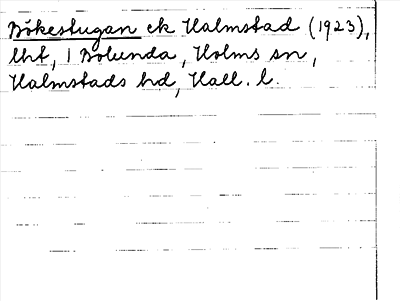 Bökestugan ek Halmstad (1923),
lht, 1 Bolunda, Holms sn,
Halmstads hd, Hall. l.